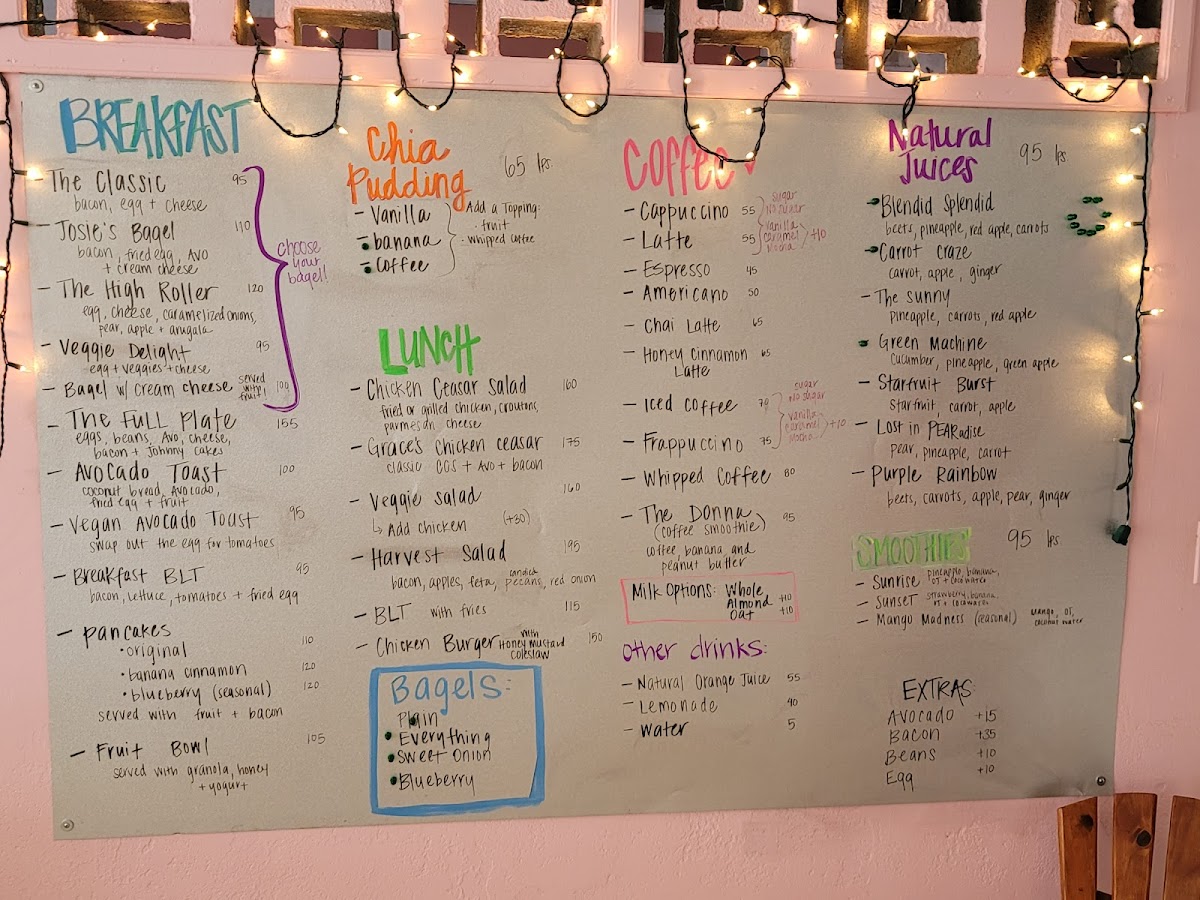 BREAKFAST
- The Classic 95
bacon, egg + cheese
- Josie's Bagel 110
bacon, fried egg, AVO
+ cream cheese
- The High Roller 120
egg, cheese, caramelized onions,
pear, apple + arugala
- Veggie Delight 95
egg + veggies + cheese
- Bagel w/ cream cheese served with fruit! 100
choose
your
bagel!
- The Full Plate 155
eggs, beans, Avo, cheese,
bacon + Johnny cakes
- Avocado Toast 100
coconut bread, Avocado,
fried egg + fruit
- Vegan Avocado Toast 95
swap out the egg for tomatoes
- Breakfast BLT 95
bacon, lettuce, tomatoes + fried egg
- pancakes
• original 110
• banana cinnamon 120
• blueberry (seasonal) 120
served with fruit + bacon
- Fruit Bowl 105
served with granola, honey
+ yogurt
Chia
Pudding 65 lps.
- Vanilla
- banana
- Coffee
Add a Topping:
· fruit
· whipped coffee
LUNCH
- Chicken Ceasar Salad 160
fried or grilled chicken, croutons,
parmesan cheese
- Grace's Chicken Ceasar 175
classic CCS + Avo + bacon
- Veggie Salad 160
↳ Add chicken (+30)
- Harvest Salad 195
bacon, apples, feta, candied pecans, red onion
- BLT with fries 115
- Chicken Burger with Honey mustard coleslaw 150
Bagels:
Plain
• Everything
• Sweet Onion
• Blueberry
Coffee
- Cappuccino 55
- Latte 55
sugar
No sugar
vanilla
caramel
mocha
+10
- Espresso 45
- Americano 50
- Chai Latte 65
- Honey Cinnamon 65
Latte
- Iced Coffee 70
- Frappuccino 75
sugar
No sugar
vanilla
caramel
mocha
+10
- Whipped Coffee 80
- The Donna 95
(coffee smoothie)
coffee, banana, and
peanut butter
Milk Options: Whole
Almond +10
Oat +10
other drinks:
- Natural Orange Juice 55
- Lemonade 40
- water 5
Natural
Juices 95 lps.
- Blendid Splendid
beets, pineapple, red apple, carrots
- Carrot Craze
carrot, apple, ginger
- The Sunny
Pineapple, carrots, red apple
- Green Machine
Cucumber, pineapple, green apple
- Starfruit Burst
Starfruit, carrot, apple
- Lost in PEARadise
pear, pineapple, carrot
- Purple Rainbow
beets, carrots, apple, pear, ginger
SMOOTHIES 95 lps.
- Sunrise pineapple, banana,
OJ + coco water
- Sunset strawberry, banana,
OJ + coco water
- Mango Madness (seasonal) Mango, OJ,
coconut water
EXTRAS
Avocado +15
Bacon +35
Beans +10
Egg +10